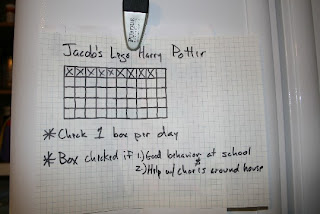 Jacob's Lego Harry Potter
X X X X X X X X X
* Check 1 box per day
* Box checked if 1.) Good behavior at school
&
2.) Help w/ chores around house